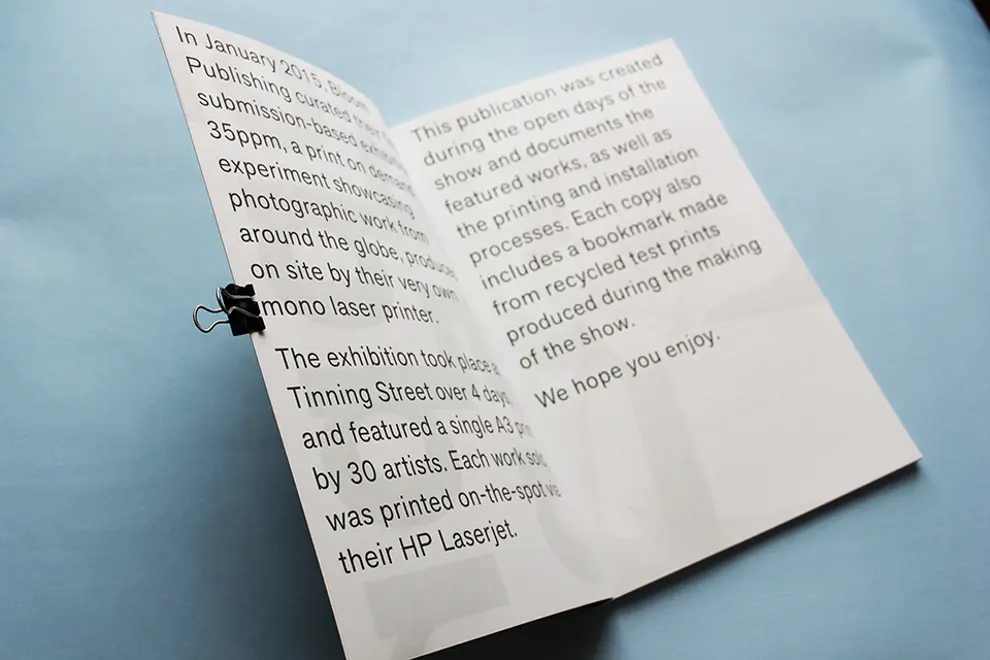 In January 2015, Bloom
Publishing curated their
submission-based
35ppm, a print on demand
experiment showcasing
photographic work from
around the globe, produced
on site by their very own
mono laser printer.
The exhibition took place
Tinning Street over 4 days
and featured a single A3
by 30 artists. Each work
was printed on-the-spot via
their HP Laserjet.
This publication was created
during the open days of the
show and documents the
featured works, as well as
the printing and installation
processes. Each copy also
includes a bookmark made
from recycled test prints
produced during the making
of the show.
We hope you enjoy.